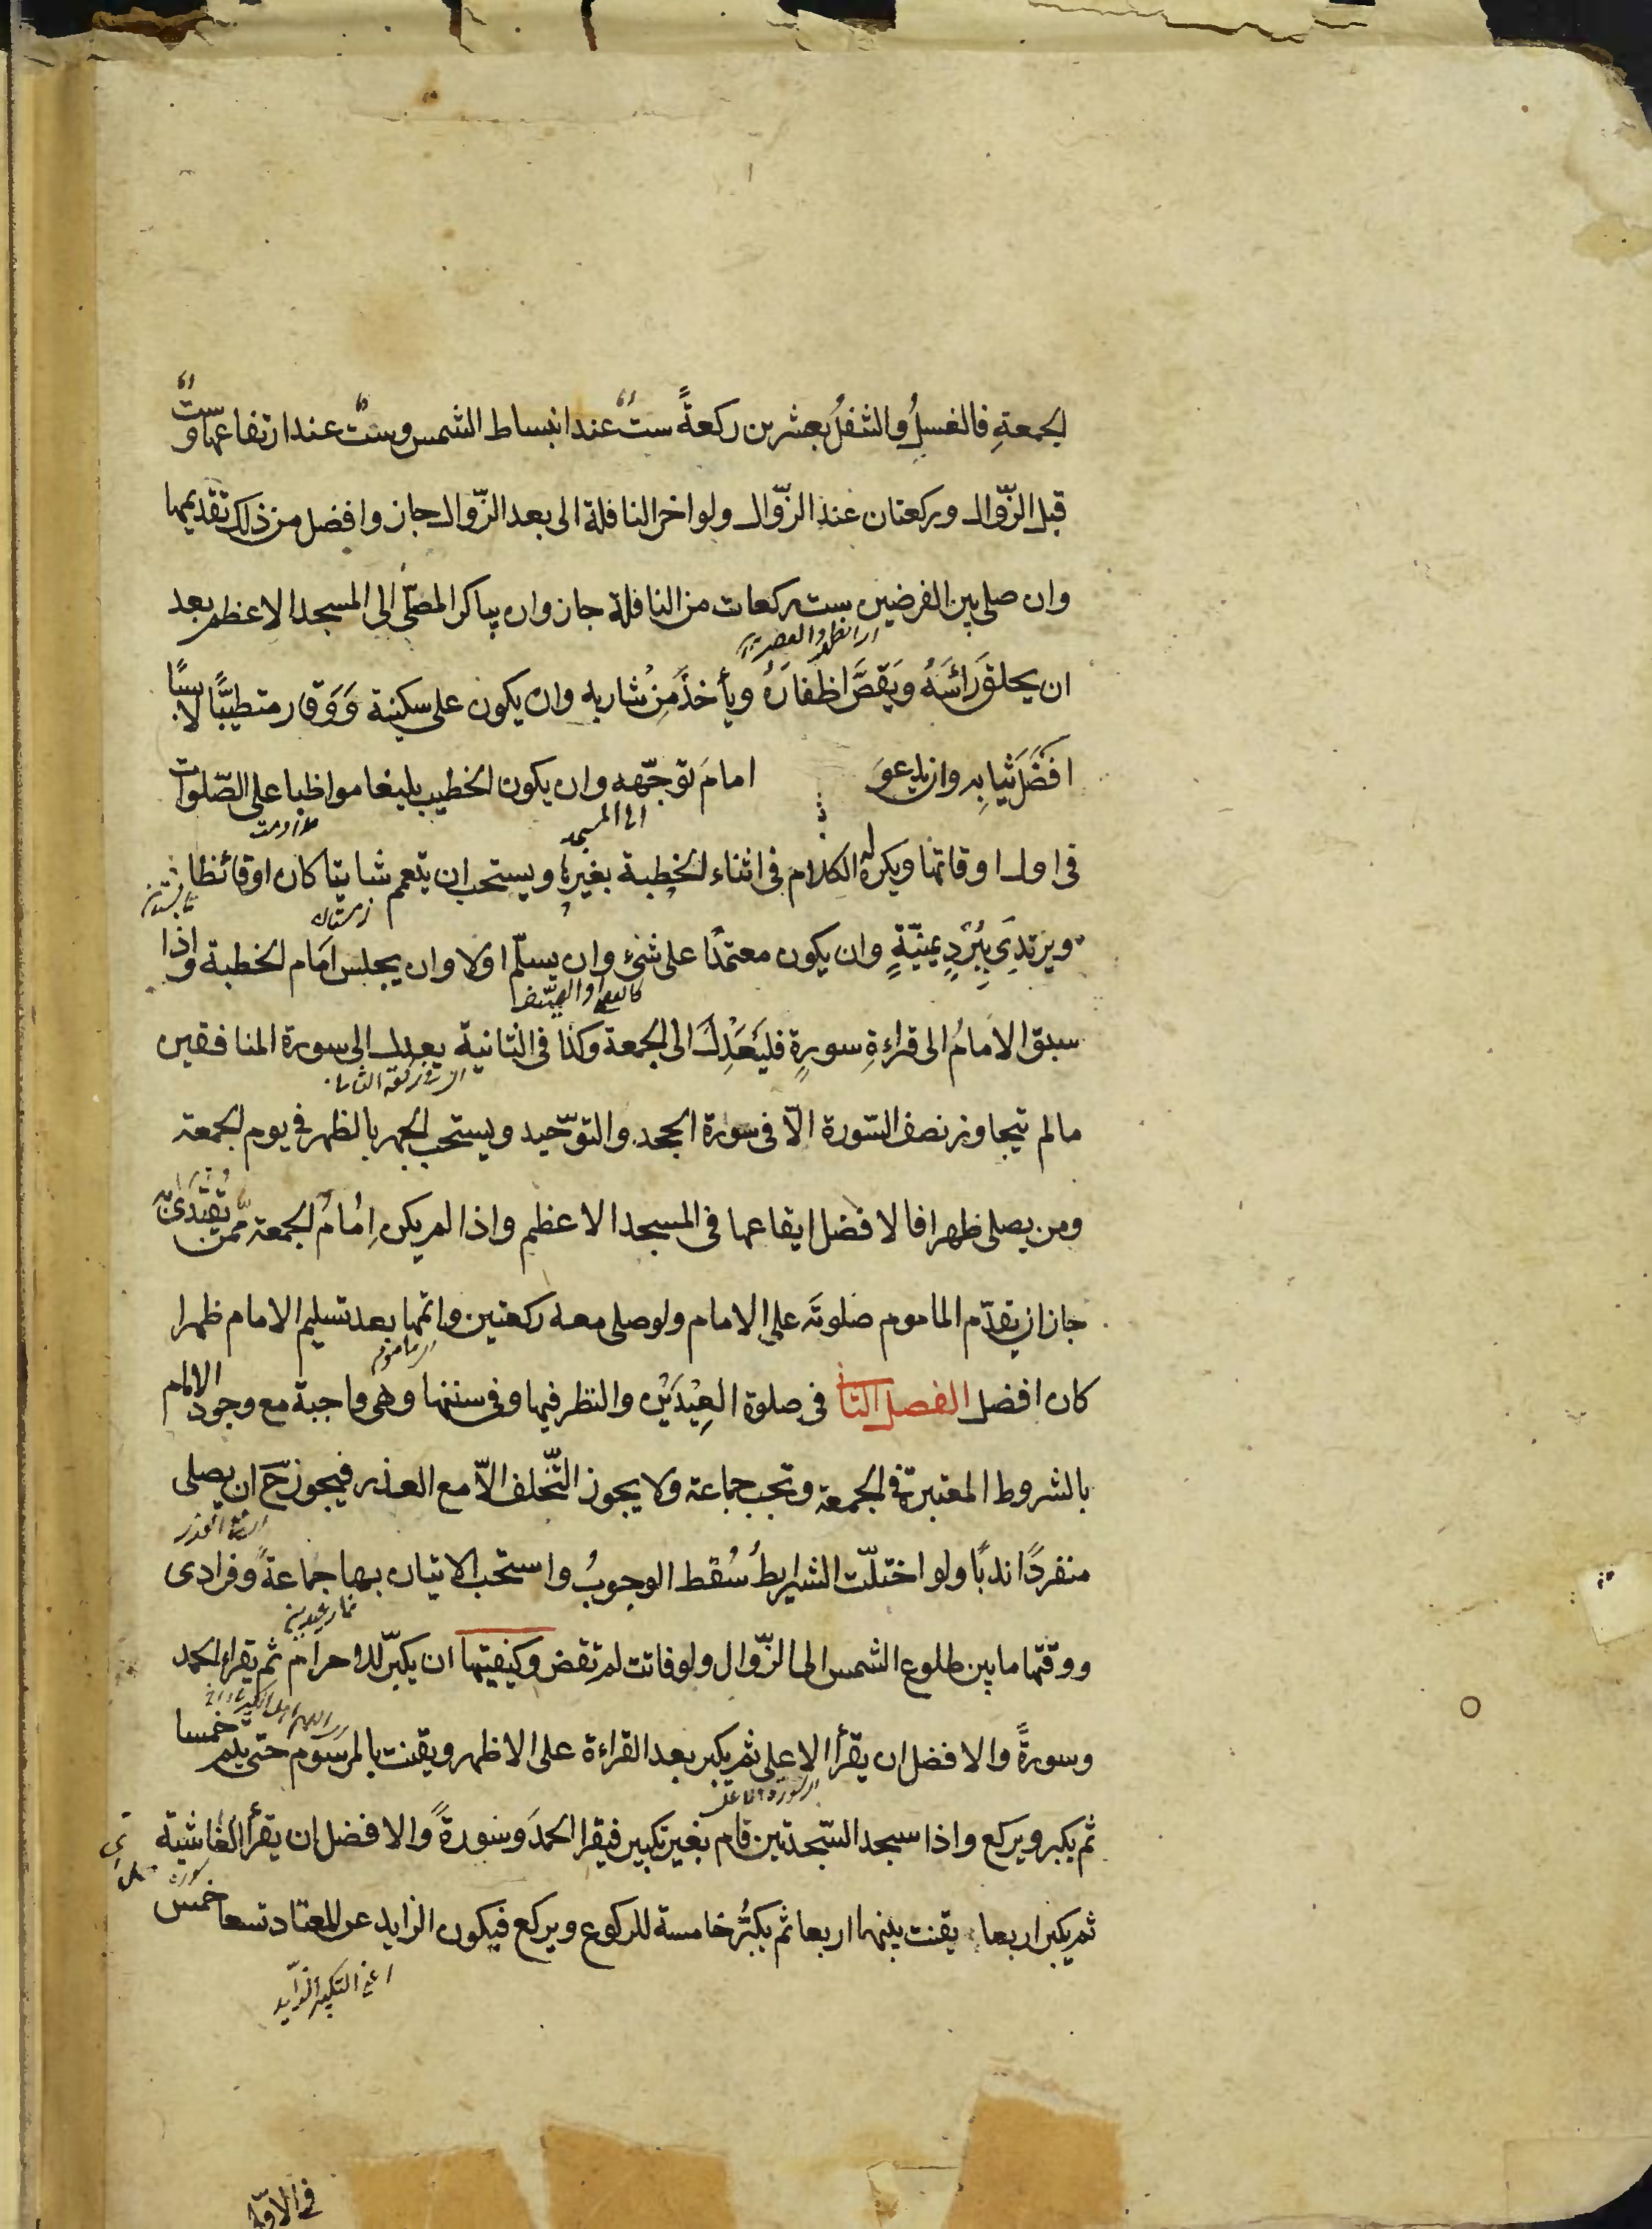 الجمعةِ فالغسلُ والتنفلُ بعشرين ركعةً ستٌ عند انبساط الشمس وستٌ عند ارتفاعها وست
قبل الزّوال وركعتان عند الزّوال ولو اخر النافلة الى بعد الزّوال جاز وافضل من ذلك تقديمها
وان صلى بين الفرضين ست ركعات من النافلة جاز وان يباكر المصلّى الى المسجد الاعظم بعد
ان يحلق رَاسَهُ ويَقصَّ اظفارَهُ ويأخذَ مِنْ شاربه وان يكون على سكينة وَوَقار متطيّبًا لابسًا
افضَلَ ثيابِه وان يدعوَ امامَ توجّهه وان يكون الخطيب بليغا مواظبا على الصّلوات
الى المسجد
فى اول اوقاتها ويكره له الكلام فى اثناء الخطبة بغيرها ويستحب ان يتعمم شاتيا كان او قائظا
زمستان
ويرتدِىَ بِبُرْدٍ يمنيّةٍ وان يكون معتمدًا على شئ وان يسلّم اولا وان يجلس امَام الخطبة واذا
سبق الامامُ الى قراءةِ سورةٍ فليَعْدِلْ الى الجمعة وكذا فى الثانية يعدل الى سورة المنافقين
مالم يتجاوز نصف السّورة الّا فى سورة الجحد والتوّحيد ويستحب الجهر بالظهر فى يوم الجمعة
ومن يصلى ظهرا فالافضل ايقاعها فى المسجد الاعظم واذا لم يكن اِمامُ الجمعة ممّن يُقتدىٰ به
جاز ان يقدّم الماموم صلوتَه على الامام ولو صلى معه ركعتين واتمها بعد تسليم الامام ظهرا
كان افضل الفصل الثا فى صلوة العِيْدَيْن والنظر فيها وفى سننها وهى واجبة مع وجود الامام
بالشروط المعتبرة فى الجمعة وتجب جماعة ولا يجوز التّخلف الّا مع العذر فيجوز حَ ان يصلى
منفردًا ندبًا ولو اختلّت الشرايطُ سُقط الوجوبُ واستحب الاتيان بها جماعةً وفرادى
ووقتها ما بين طلوع الشمس الى الزّوال ولو فاتت لم تقض وكيفيتها ان يكبّر للاحرام ثم يقراء الحمد
وسورةً والافضل ان يقرأ الاعلى ثم يكبر بعد القراءة على الاظهر ويقنت بالمرسوم حتى يتم خمسا
ثم يكبر ويركع واذا سجد السّجدتين قام بغير تكبير فيقرا الحمدَ وسورةً والافضل ان يقرأ الغاشية
ثم يكبر اربعا يقنت بينها اربعا ثم يكبّرُ خامسة للركوع ويركع فيكون الزايد عن المعتاد تسعا خمس
اعنى التكبير الزايد
فى الاوّلى